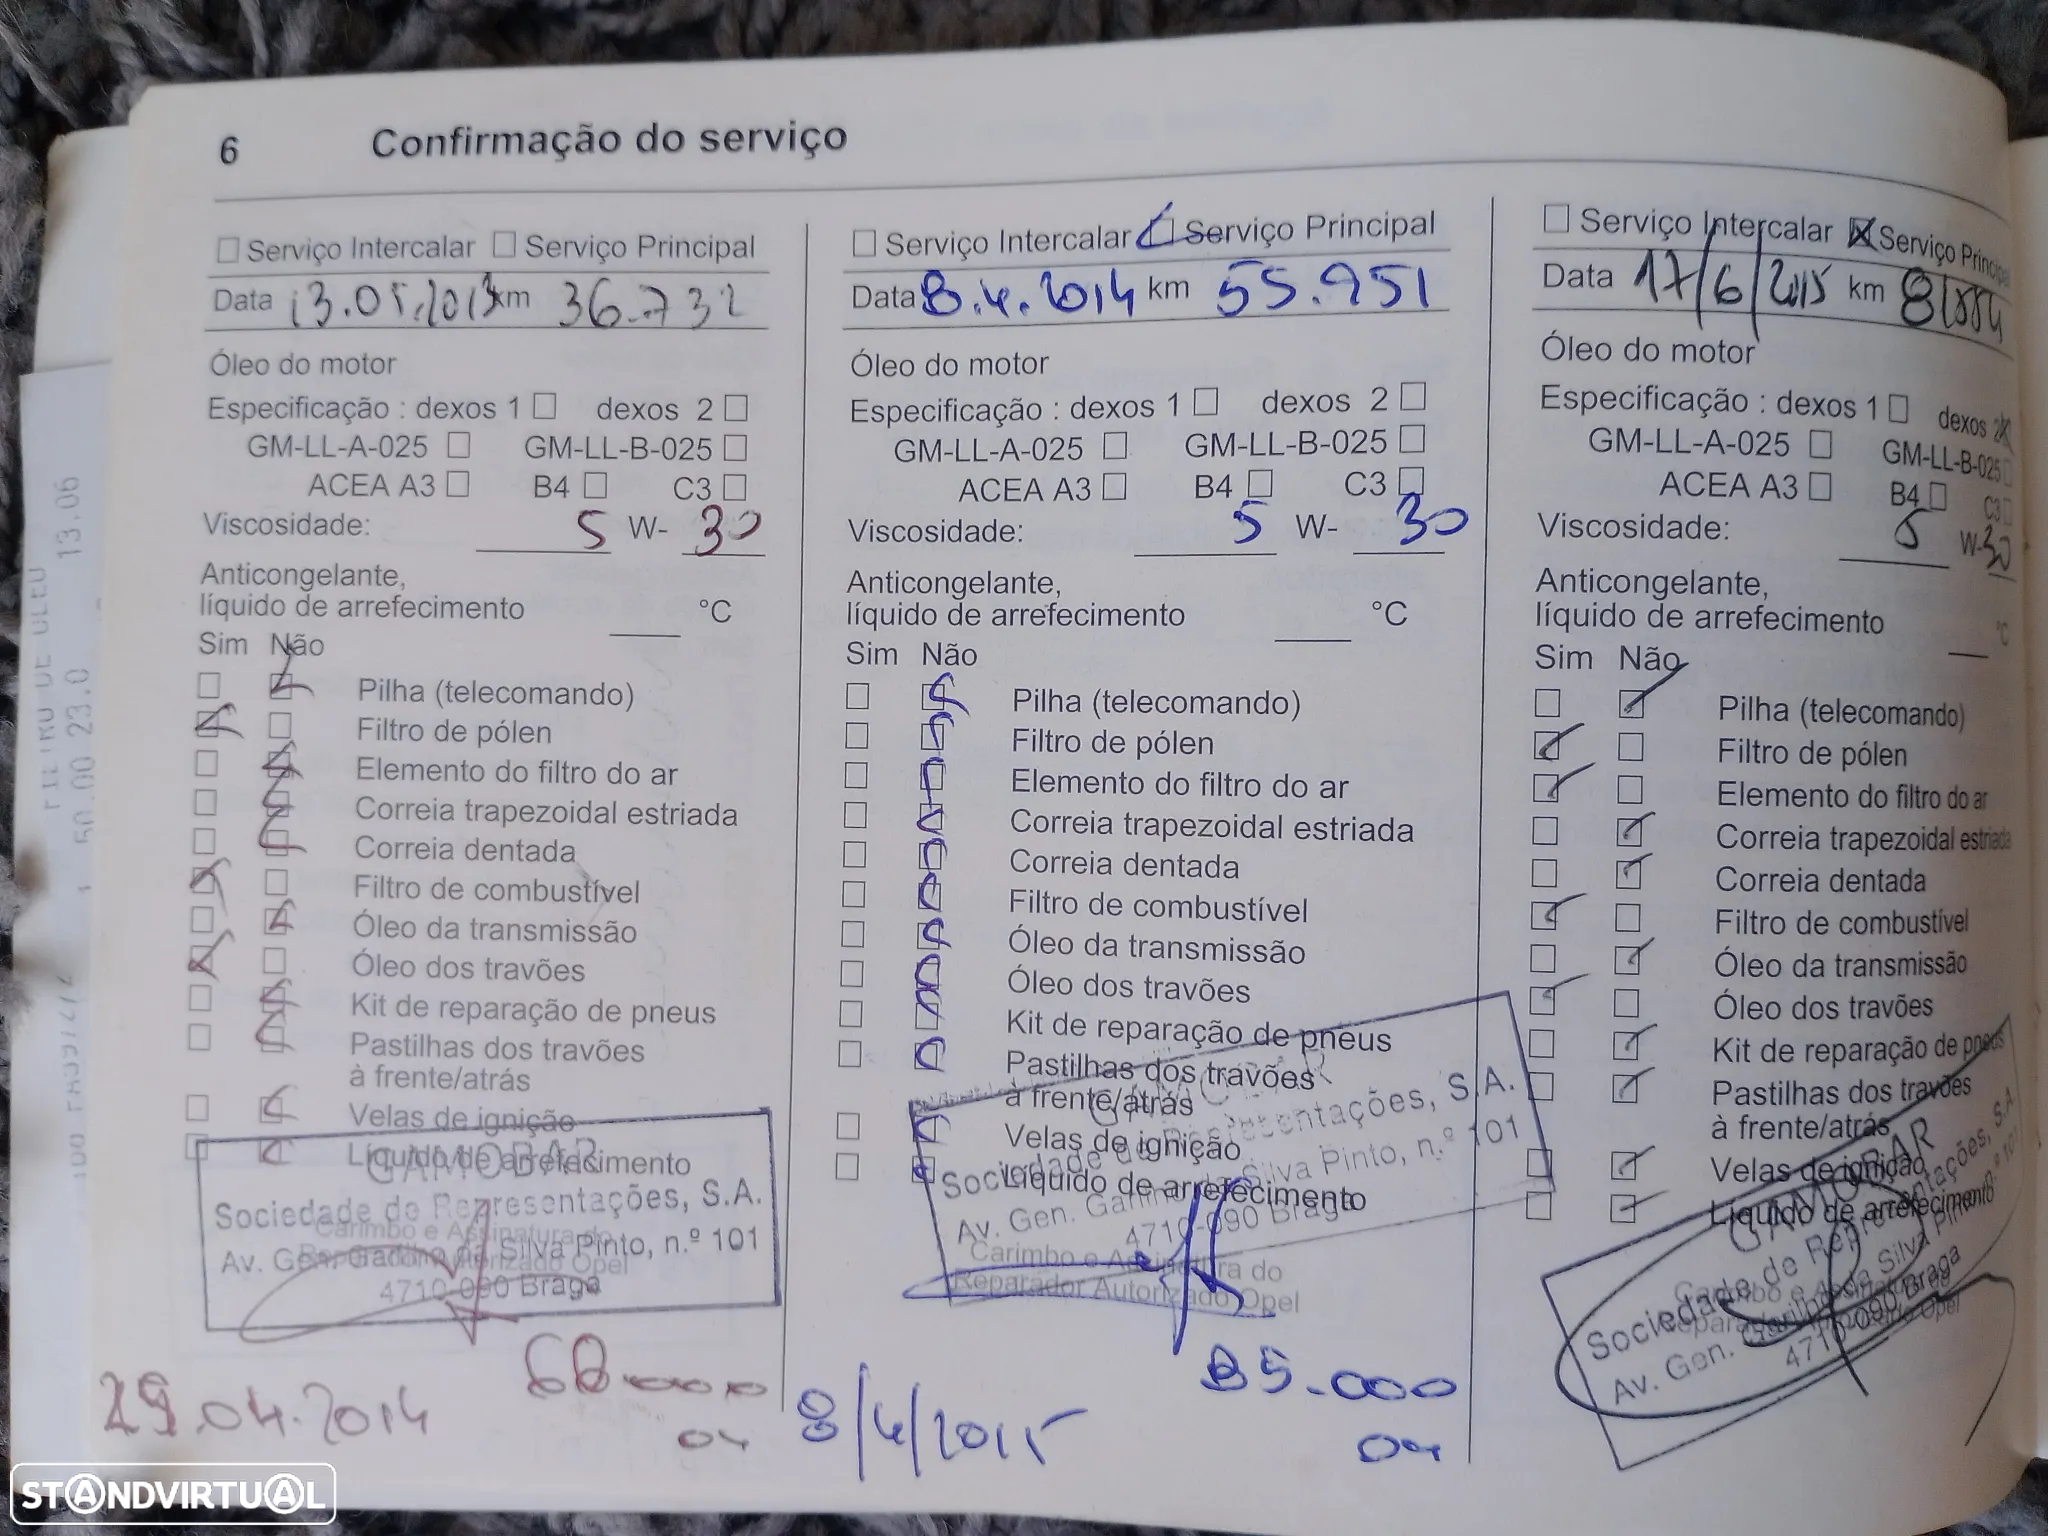 6 Confirmação do serviço
Serviço Intercalar Serviço Principal
Data 13.05.2013 km 36.732
Óleo do motor
Especificação : dexos 1 dexos 2
GM-LL-A-025 GM-LL-B-025
ACEA A3 B4 C3
Viscosidade: 5 W- 30
Anticongelante,
líquido de arrefecimento °C
Sim Não
Pilha (telecomando)
Filtro de pólen
Elemento do filtro do ar
Correia trapezoidal estriada
Correia dentada
Filtro de combustível
Óleo da transmissão
Óleo dos travões
Kit de reparação de pneus
Pastilhas dos travões
à frente/atrás
Velas de ignição
Líquido de arrefecimento
GAMOBAR
Sociedade de Representações, S.A.
Carimbo e Assinatura do
Av. Gen. Carrilho da Silva Pinto, n.º 101
Reparador Autorizado Opel
4710-090 Braga
29.04.2014
Serviço Intercalar Serviço Principal
Data 8.4.2014 km 55.951
Óleo do motor
Especificação : dexos 1 dexos 2
GM-LL-A-025 GM-LL-B-025
ACEA A3 B4 C3
Viscosidade: 5 W- 30
Anticongelante,
líquido de arrefecimento °C
Sim Não
Pilha (telecomando)
Filtro de pólen
Elemento do filtro do ar
Correia trapezoidal estriada
Correia dentada
Filtro de combustível
Óleo da transmissão
Óleo dos travões
Kit de reparação de pneus
Pastilhas dos travões
à frente/atrás
Velas de ignição
Líquido de arrefecimento
GAMOBAR
Sociedade de Representações, S.A.
Av. Gen. Carrilho da Silva Pinto, n.º 101
4710-090 Braga
Carimbo e Assinatura do
Reparador Autorizado Opel
85.000
8/4/2015
Serviço Intercalar Serviço Principal
Data 17/6/2015 km
Óleo do motor
Especificação : dexos 1 dexos 2
GM-LL-A-025 GM-LL-B-025
ACEA A3 B4 C3
Viscosidade: 5 W-30
Anticongelante,
líquido de arrefecimento °C
Sim Não
Pilha (telecomando)
Filtro de pólen
Elemento do filtro do ar
Correia trapezoidal estriada
Correia dentada
Filtro de combustível
Óleo da transmissão
Óleo dos travões
Kit de reparação de pneus
Pastilhas dos travões
à frente/atrás
Velas de ignição
Líquido de arrefecimento
GAMOBAR
Sociedade de Representações, S.A.
Av. Gen. Carrilho da Silva Pinto, n.º 101
4710-090 Braga
Carimbo e Assinatura do
Reparador Autorizado Opel
STANDVIRTUAL